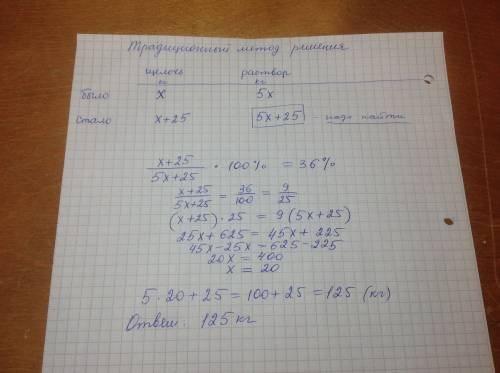 Традиционный метод решения
щелочь раствор
кг кг
было x 5x
стало x+25 5x+25 - надо найти
x+25/5x+25 · 100% = 36%
x+25/5x+25 = 36/100 = 9/25
(x+25)·25 = 9(5x+25)
25x+625 = 45x+225
45x-25x = 625-225
20x = 400
x = 20
5·20+25=100+25=125 (кг)
Ответ: 125 кг